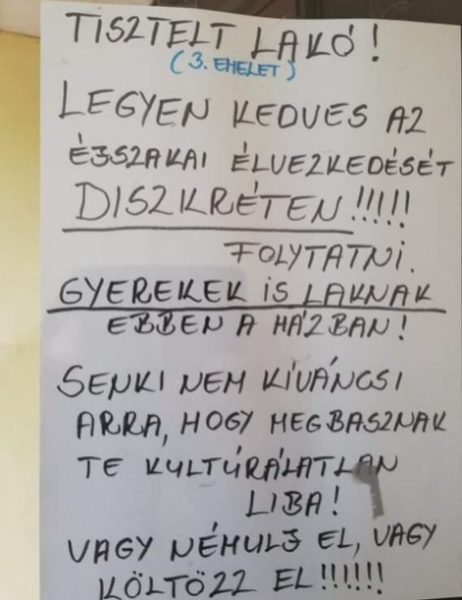 TISZTELT LAKÓ!
(3. EMELET)
LEGYEN KEDVES AZ
ÉJSZAKAI ÉLVEZKEDÉSÉT
DISZKRÉTEN!!!!!
FOLYTATNI.
GYEREKEK IS LAKNAK
EBBEN A HÁZBAN!
SENKI NEM KÍVÁNCSI
ARRA, HOGY MEGBASZNAK
TE KULTÚRÁLATLAN
LIBA!
VAGY NÉMULJ EL, VAGY
KÖLTÖZZ EL!!!!!!